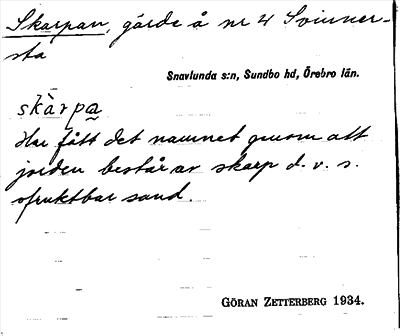 Skarpan, gärde å nr 4 Svinner-
sta
Snavlunda s:n, Sundbo hd, Örebro län.
skàrpa
Har fått det namnet genom att
jorden består av skarp d.v.s.
ofruktbar sand.
GÖRAN ZETTERBERG 1934.